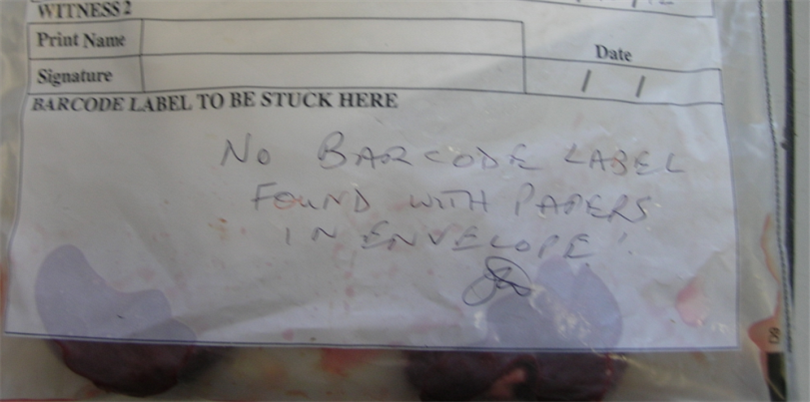 WITNESS 2
Print Name
Date
Signature
/ /
BARCODE LABEL TO BE STUCK HERE
NO BARCODE LABEL
FOUND WITH PAPERS
IN ENVELOPE!